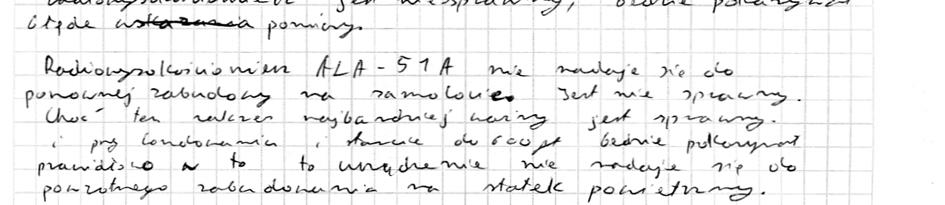 jest niesprawny, będzie pokazywał
błędne wskazania pomiary.
Radiowysokościomierz ALA-51A nie nadaje się do
ponownej zabudowy na samolocie. Jest nie sprawny.
Choć ten zakres najbardziej ważny jest sprawny.
i przy lądowaniu i starcie do 600 ft będzie pokazywał
prawidłowo to to urządzenie nie nadaje się do
powrotnego zabudowania na statek powietrzny.